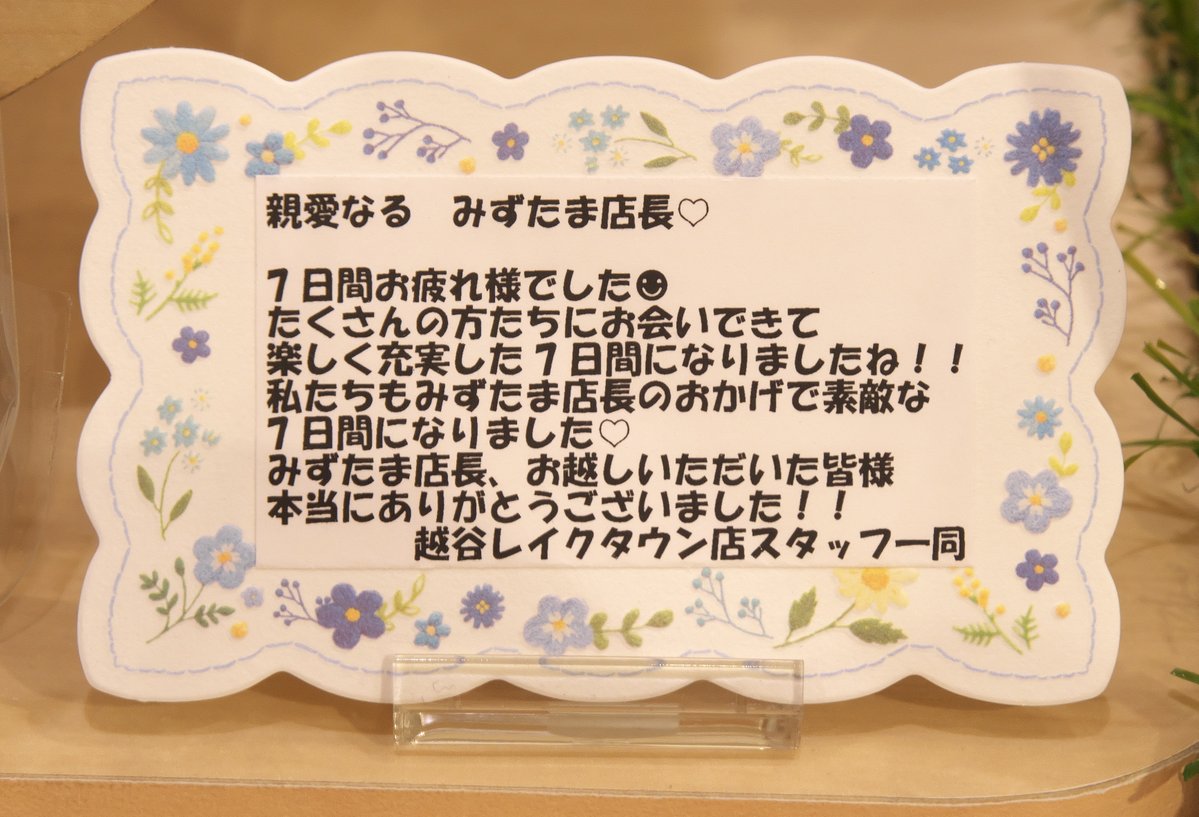 親愛なる　みずたま店長♡
７日間お疲れ様でした☻
たくさんの方たちにお会いできて
楽しく充実した７日間になりましたね！！
私たちもみずたま店長のおかげで素敵な
７日間になりました♡
みずたま店長、お越しいただいた皆様
本当にありがとうございました！！
越谷レイクタウン店スタッフ一同